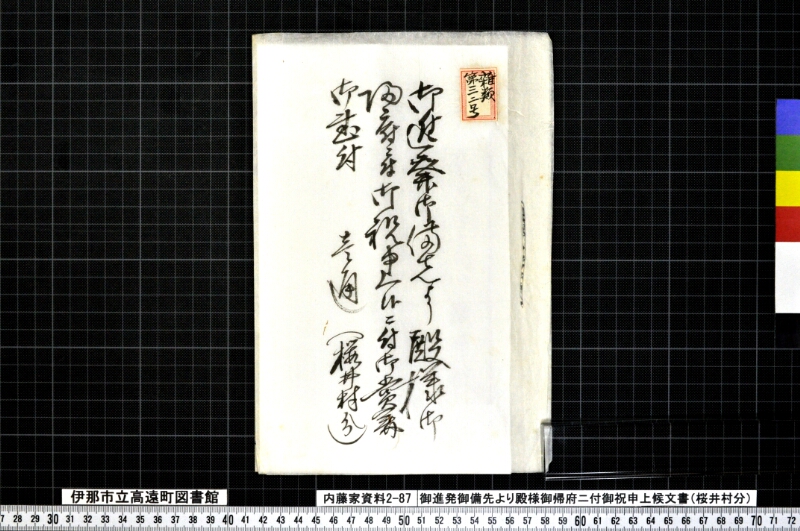 雑類
第三二号
御進発御備先より殿様御
帰府ニ付御祝申上候ニ付御賞
御書付
壱通
桜井村分
伊那市立高遠町図書館
内藤家資料2-87
御進発御備先より殿様御帰府ニ付御祝申上候文書(桜井村分)
27 28 29 30 31 32 33 34 35 36 37 38 39 40 41 42 43 44 45 46 47 48 49 50 51 52 53 54 55 56 57 58 59 60 61 62 63 64 65 66 67 68 69 70 71 72